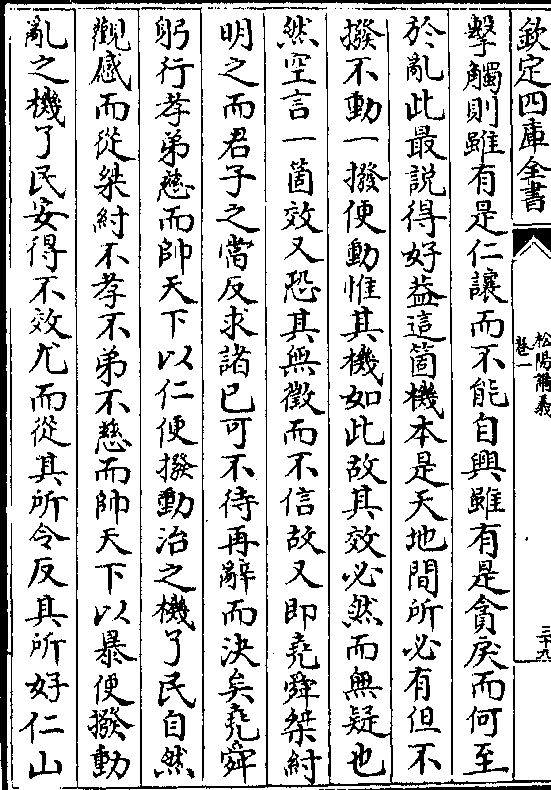 欽定四庫全書
松陽講義
卷一
二十九
擊觸則雖有是仁讓而不能自興雖有是貪戾而何至
於亂此最説得好葢這箇機本是天地間所必有但不
撥不動一撥便動惟其機如此故其效必然而無疑也
然空言一箇效又恐其無徵而不信故又即堯舜桀紂
明之而君子之當反求諸已可不待再辭而決矣堯舜
躬行孝弟慈而帥天下以仁便撥動治之機了民自然
觀感而從桀紂不孝不弟不慈而帥天下以暴便撥動
亂之機了民安得不效尤而從其所令反其所好仁山